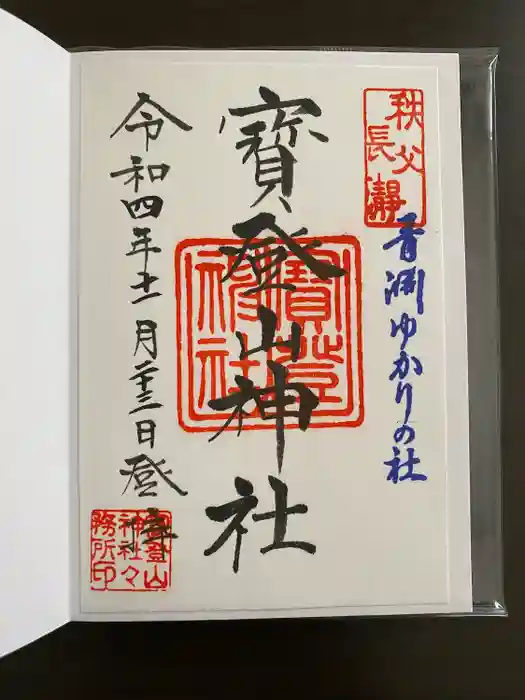 秩父
長瀞
青渊ゆかりの社
寳登山神社
寳登山
神社
令和四年十一月二十三日登拝
寳登山
神社々
務所印